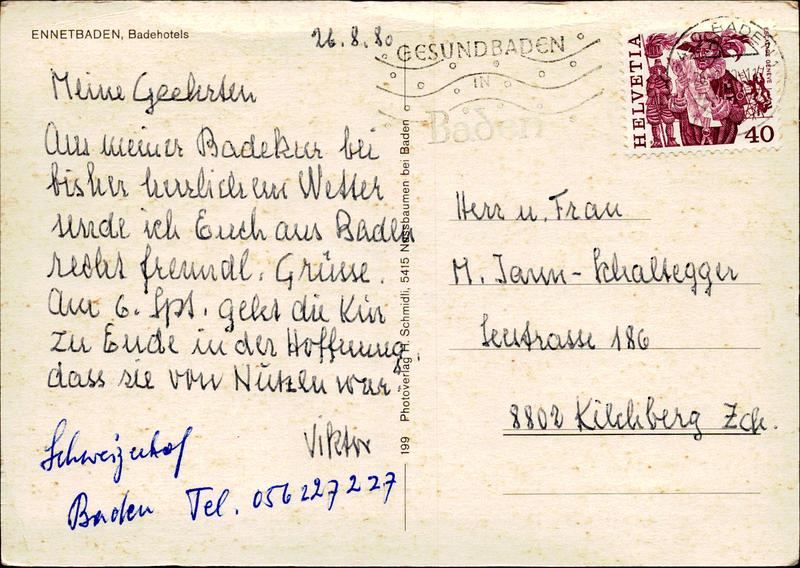 ENNETBADEN, Badehotels
26.8.80
GESUNDBADEN
IN
Baden
HELVETIA
40
Meine Geehrten
Aus meiner Badekur bei
bisher herrlichem Wetter
sende ich Euch aus Baden
recht freundl. Grüsse.
Am 6. Spt. geht die Kur
zu Ende in der Hoffnung,
dass sie von Nutzen war.
Viktor
Schweizerhof
Baden Tel. 056 227227
199 Photoverlag H. Schmidli, 5415 Nussbaumen bei Baden
Herr u. Frau
M. Jann-Schaltegger
Seestrasse 186
8802 Kilchberg Zch.